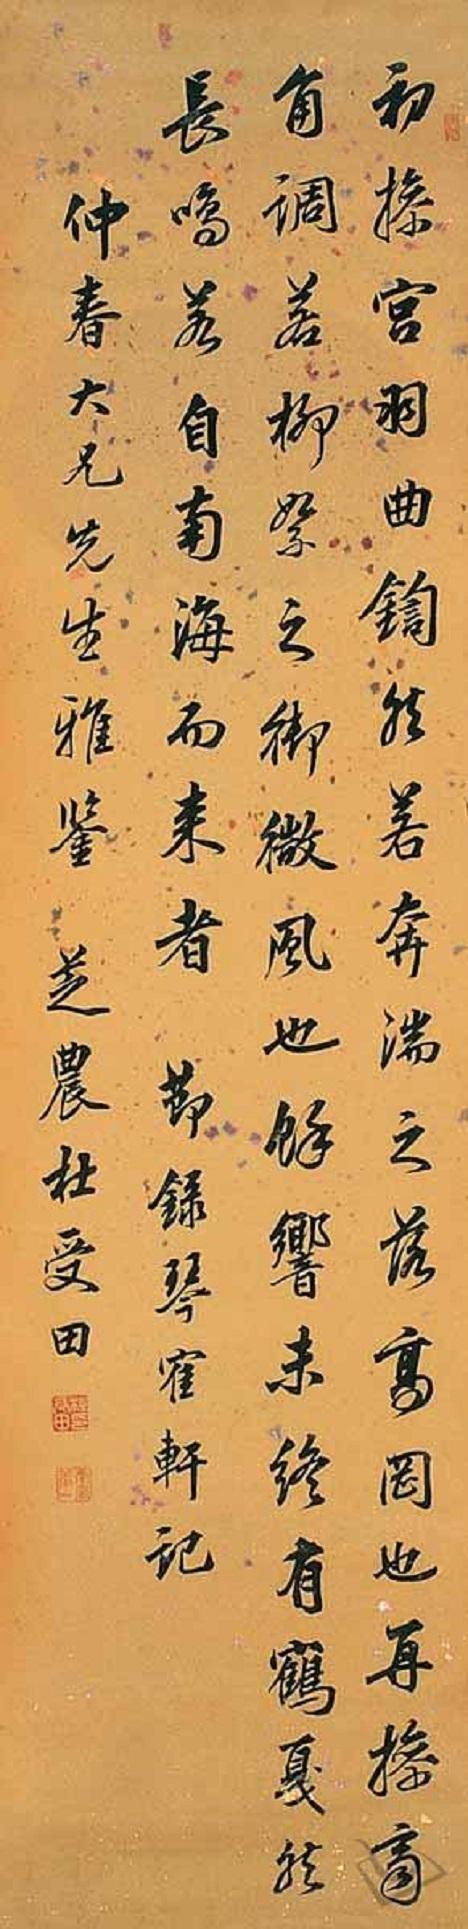 初操宮羽曲鍧然若奔湍之落高岡也再操商
角調若柳絮之御微風也餘響未終有鶴戛然
長鳴若自南海而来者 節録琴寉軒記
仲春大兄先生雅鑒 芝農杜受田